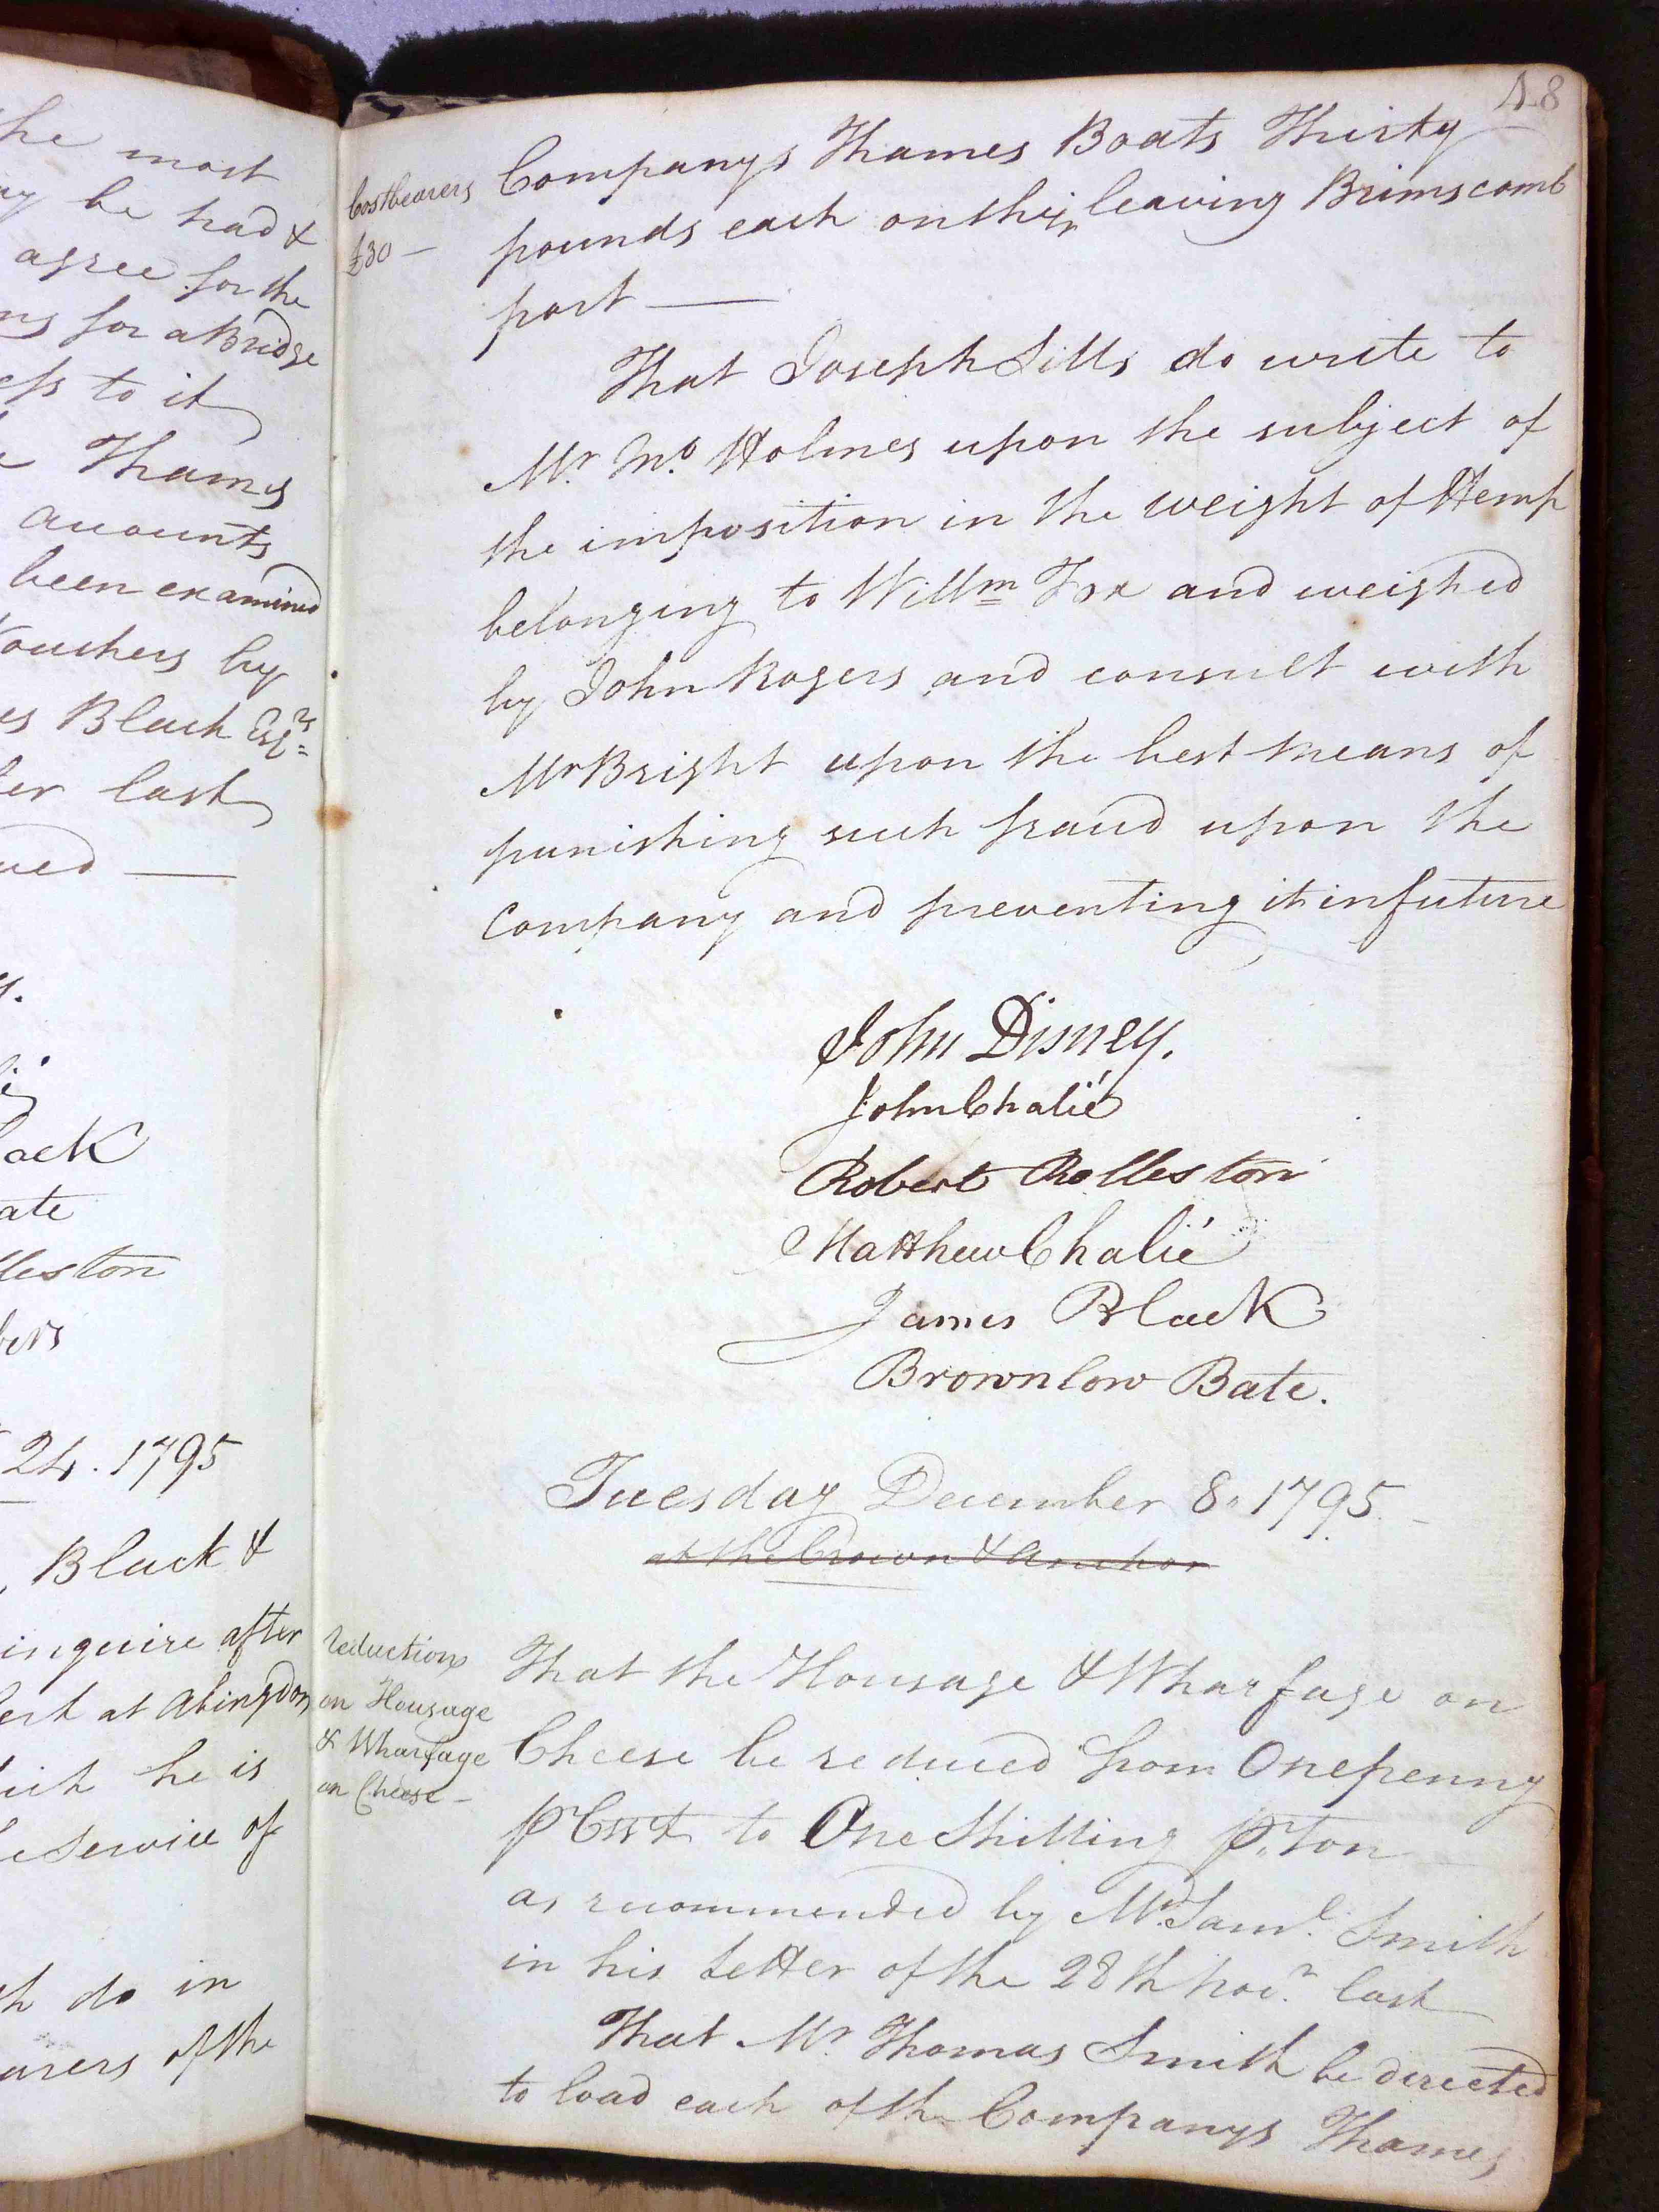 he most
be had &
agree for the
for a Bridge
to it
Thames
accounts
been examined
Vouchers by
Black Esqrs
last
24. 1795
Black &
inquire after
at Abingdon
he is
Service of
do in
of the
48
Costbearers
£30 —
Companys Thames Boats Thirty
pounds each on their leaving Brimscomb
port —
That Joseph Sills do write to
Mr. Mo. Holmes upon the subject of
the imposition in the weight of Hemp
belonging to Willm Fox and weighed
by John Rogers and consult with
Mr Bright upon the best means of
punishing such fraud upon the
Company and preventing it in future
John Disney.
John Chalié
Robert Rolleston
Matthew Chalié
James Black
Brownlow Bate.
Tuesday December 8. 1795.
at the Crown & Anchor
reduction
on Housage
& Wharfage
on Cheese —
That the Housage & Wharfage on
Cheese be reduced from One penny
P Cwt to One Shilling P. Ton
as recommended by Mr. Saml. Smith
in his Letter of the 28th Novr. last
That Mr. Thomas Smith be directed
to load each of the Companys Thames